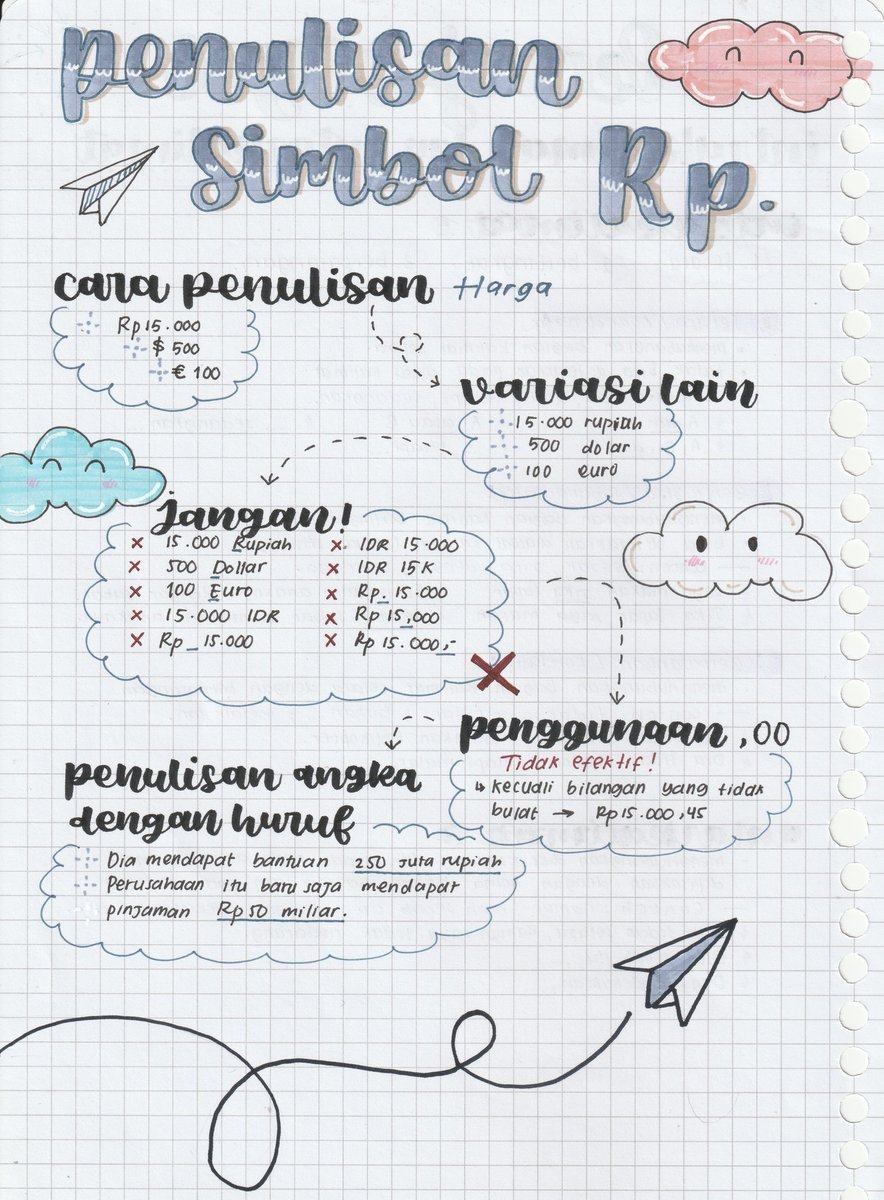 penulisan
Simbol Rp.
cara penulisan Harga
Rp15.000
$ 500
€ 100
variasi lain
15.000 rupiah
500 dolar
100 euro
jangan!
× 15.000 Rupiah
× 500 Dollar
× 100 Euro
× 15.000 IDR
× Rp _ 15.000
× IDR 15.000
× IDR 15K
× Rp. 15.000
× Rp 15,000
× Rp 15.000,-
penggunaan ,00
Tidak efektif!
↳ kecuali bilangan yang tidak
bulat → Rp15.000,45
penulisan angka
dengan huruf
Dia mendapat bantuan 250 juta rupiah
Perusahaan itu baru saja mendapat
pinjaman Rp50 miliar.